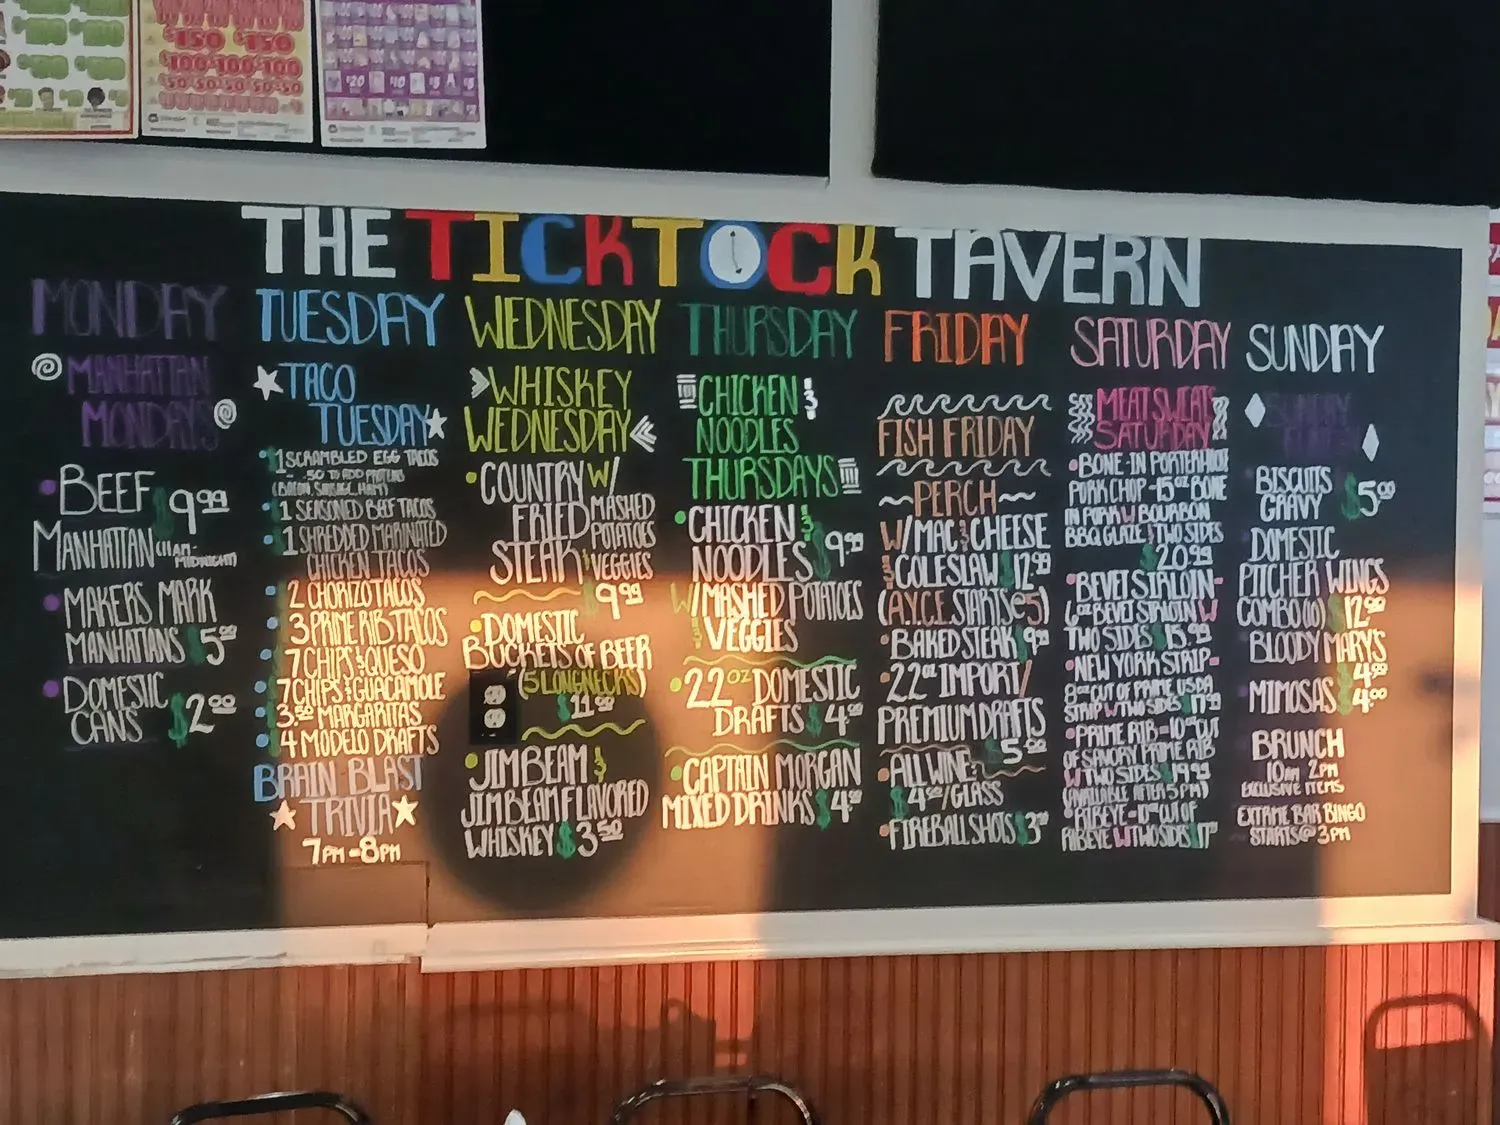 $150 $150
$100 $100 $100
$20 $10 $5 $5
THE TICKTOCK TAVERN
MONDAY
MANHATTAN
MONDAY'S
BEEF $9.99
MANHATTAN (11AM-
MIDNIGHT)
MAKERS MARK
MANHATTANS $5.00
DOMESTIC
CANS $2.00
TUESDAY
TACO
TUESDAY
$1 SCRAMBLED EGG TACOS
.50 TO ADD PROTEINS
(BACON, SAUSAGE, HAM)
$1 SEASONED BEEF TACOS
$1 SHREDDED MARINATED
CHICKEN TACOS
$2 CHORIZO TACOS
$3 PRIME RIB TACOS
$7 CHIPS & QUESO
$7 CHIPS & GUACAMOLE
$3.50 MARGARITAS
$4 MODELO DRAFTS
BRAIN BLAST
TRIVIA
7PM-8PM
WEDNESDAY
WHISKEY
WEDNESDAY
COUNTRY W/
FRIED MASHED POTATOES
STEAK VEGGIES
$9.99
DOMESTIC
BUCKETS OF BEER
(5 LONGNECKS)
$11.00
JIM BEAM &
JIM BEAM FLAVORED
WHISKEY $3.50
THURSDAY
CHICKEN &
NOODLES
THURSDAYS
CHICKEN &
NOODLES $9.99
W/MASHED POTATOES
& VEGGIES
22OZ DOMESTIC
DRAFTS $4.00
CAPTAIN MORGAN
MIXED DRINKS $4.00
FRIDAY
FISH FRIDAY
~PERCH~
W/MAC & CHEESE
& COLESLAW $12.99
(A.Y.C.E. STARTS@5)
BAKED STEAK $9.99
22OZ IMPORT/
PREMIUM DRAFTS
$5.00
ALL WINE
$4.00/GLASS
FIREBALL SHOTS $3.00
SATURDAY
MEAT SWEATS
SATURDAY
BONE-IN PORTERHOUSE
PORK CHOP-15OZ BONE
IN PORK W BOURBON
BBQ GLAZE & TWO SIDES
$20.99
SIRLOIN-
6OZ SIRLOIN W
TWO SIDES $15.99
NEW YORK STRIP-
8OZ CUT OF PRIME USDA
STRIP W TWO SIDES $17.99
PRIME RIB-10OZ CUT
OF SAVORY PRIME RIB
W TWO SIDES $19.99
(AVAILABLE AFTER 5PM)
RIBEYE-10OZ CUT OF
RIBEYE W TWO SIDES
SUNDAY
SUNDAY
BISCUITS
GRAVY $5.00
DOMESTIC
PITCHER WINGS
COMBO(10) $12.00
BLOODY MARY'S
$4.00
MIMOSAS $4.00
BRUNCH
10AM 2PM
EXCLUSIVE ITEMS
EXTREME BAR BINGO
STARTS@3PM